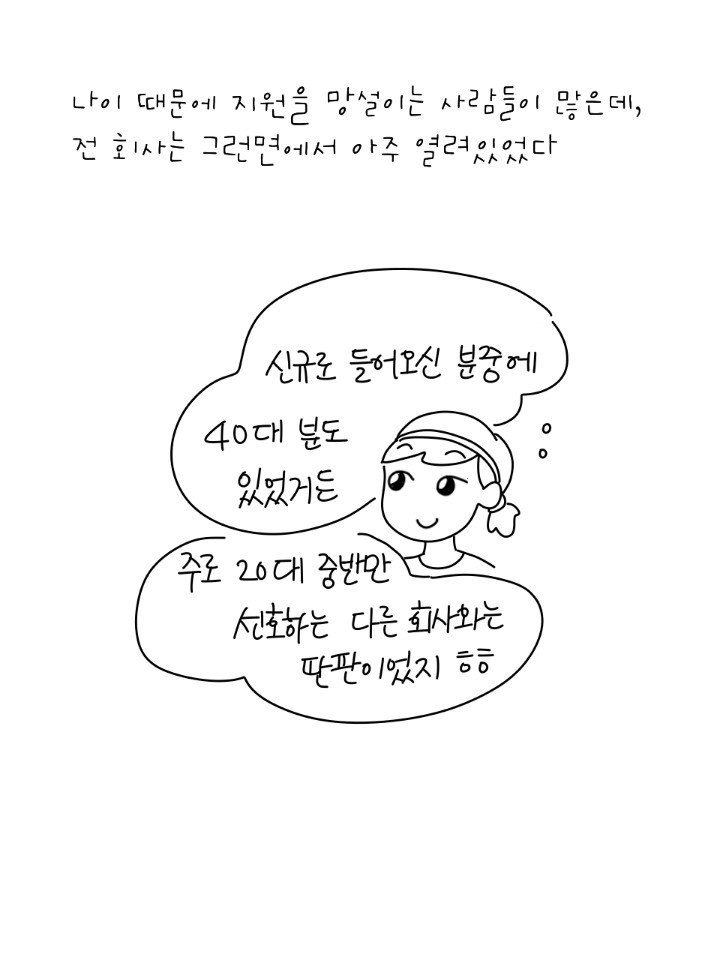 나이 때문에 지원을 망설이는 사람들이 많은데,
전 회사는 그런면에서 아주 열려있었다
신규로 들어오신 분중에
40대 분도
있었거든
주로 20대 중반만
선호하는 다른 회사와는
딴판이었지 ㅎㅎ